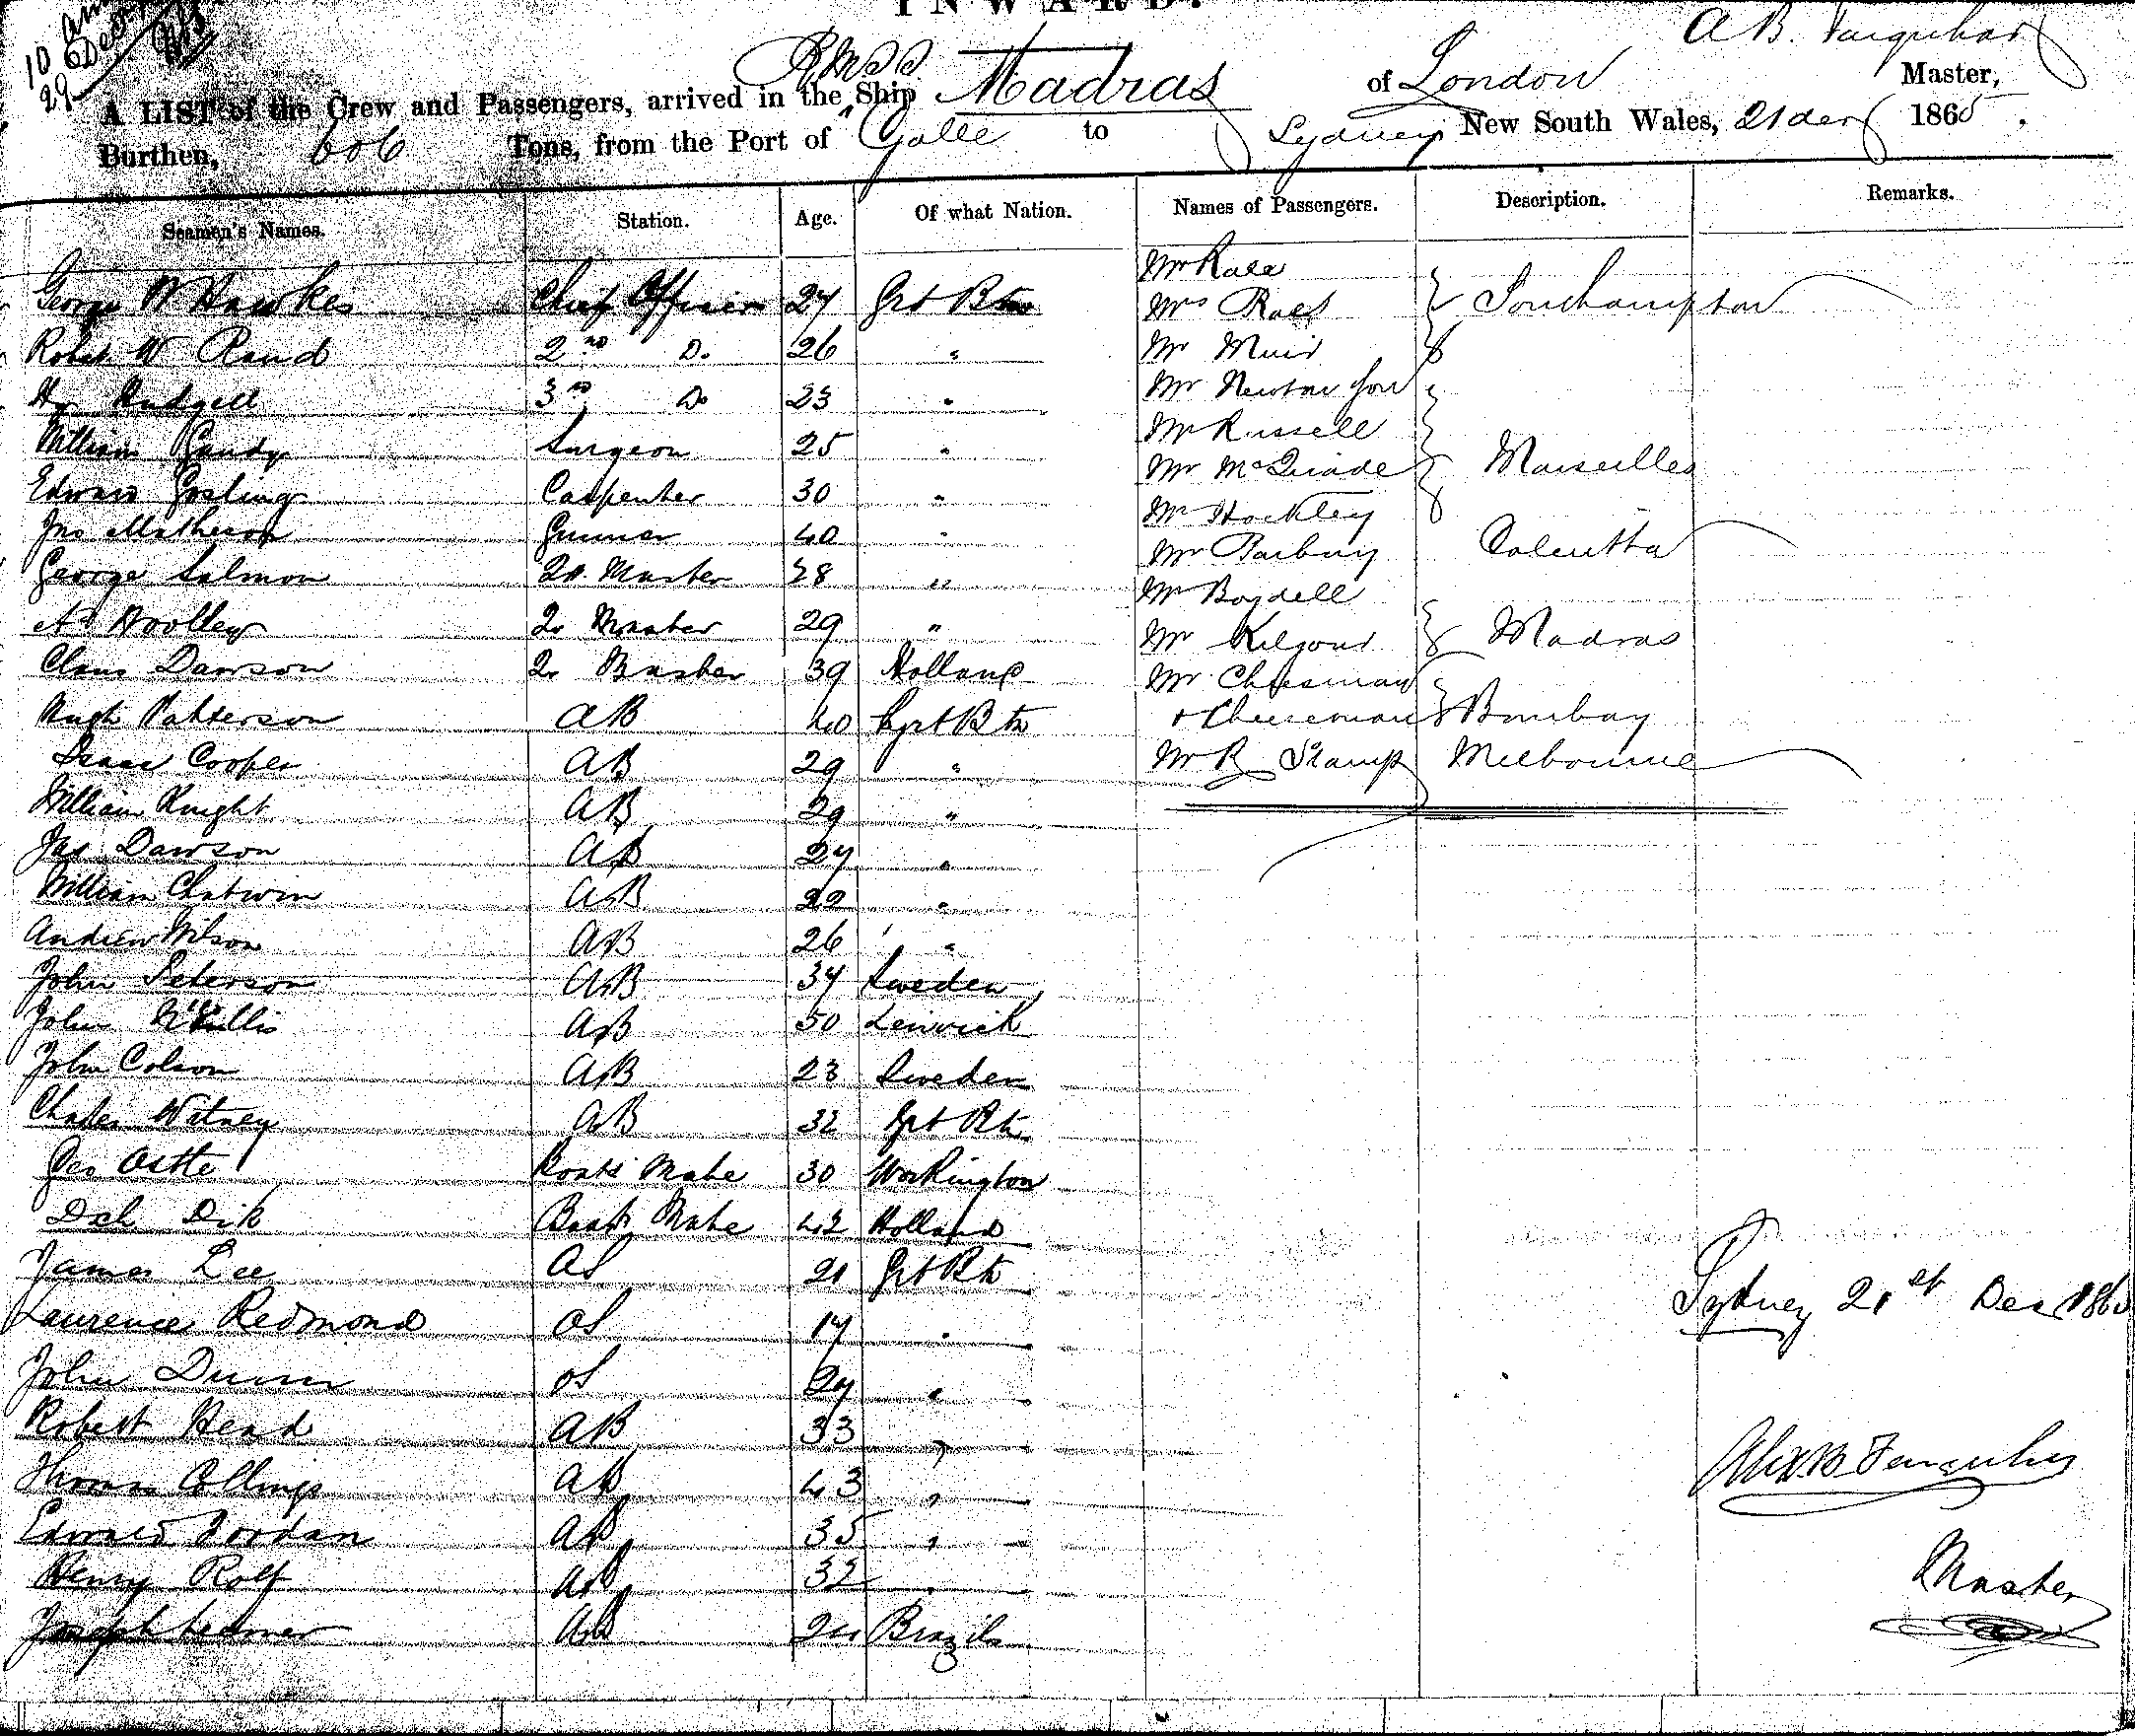 INWARD.
A B. Farquhar
RMSS
A LIST of the Crew and Passengers, arrived in the Ship Madras of London Master,
Burthen, 606 Tons, from the Port of Galle to Sydney New South Wales, 21 Dec 1865.
Seamen's Names. Station. Age. Of what Nation. Names of Passengers. Description. Remarks.
George W Hawkes Chief Officer 27 Grt Btn
Robt W Rand 2nd Do 26 "
Hy Hudgell 3rd Do 23 "
William Gandy Surgeon 25 "
Edward Gosling Carpenter 30 "
Jno Matheson Gunner 40 "
George Salmon Qr. Master 28 "
Ad Woolley Qr Master 29 "
Claus Dawson Qr Master 39 Holland
Hugh Patterson AB 40 Grt Btn
Isaac Cooper AB 29 "
William Knight AB 29 "
Jas Dawson AB 27 "
William Chatwin AB 22 "
Andrew Wilson AB 26 "
John Peterson AB 34 Sweden
John AB 50 Lerwick
John Colson AB 23 Sweden
Charles Witney AB 32 Grt Btn
Geo Astle Boats Mate 30 Workington
Dik Boats Mate 42 Holland
James Lee OS 21 Grt Btn
Laurence Redmond OS 17 "
John Dunn OS 24 "
Robert Head AB 33 "
Thomas Collings AB 43 "
Edward Jordan AB 35 "
Henry Rolf AB 32 "
Joseph AB Brazils
Mr
Mrs } Southampton
Mr Muir
Mr Newton Son
Mr Russell
Mr McQuade } Marseilles
Mr Hockley
Mr Parbury Calcutta
Mr Boydell
Mr Kilgour } Madras
Mr Cheesman
+ Cheeseman } Bombay
Mr R Stamp Melbourne
Sydney 21st Dec 1865
Alex B Farquhar
Master